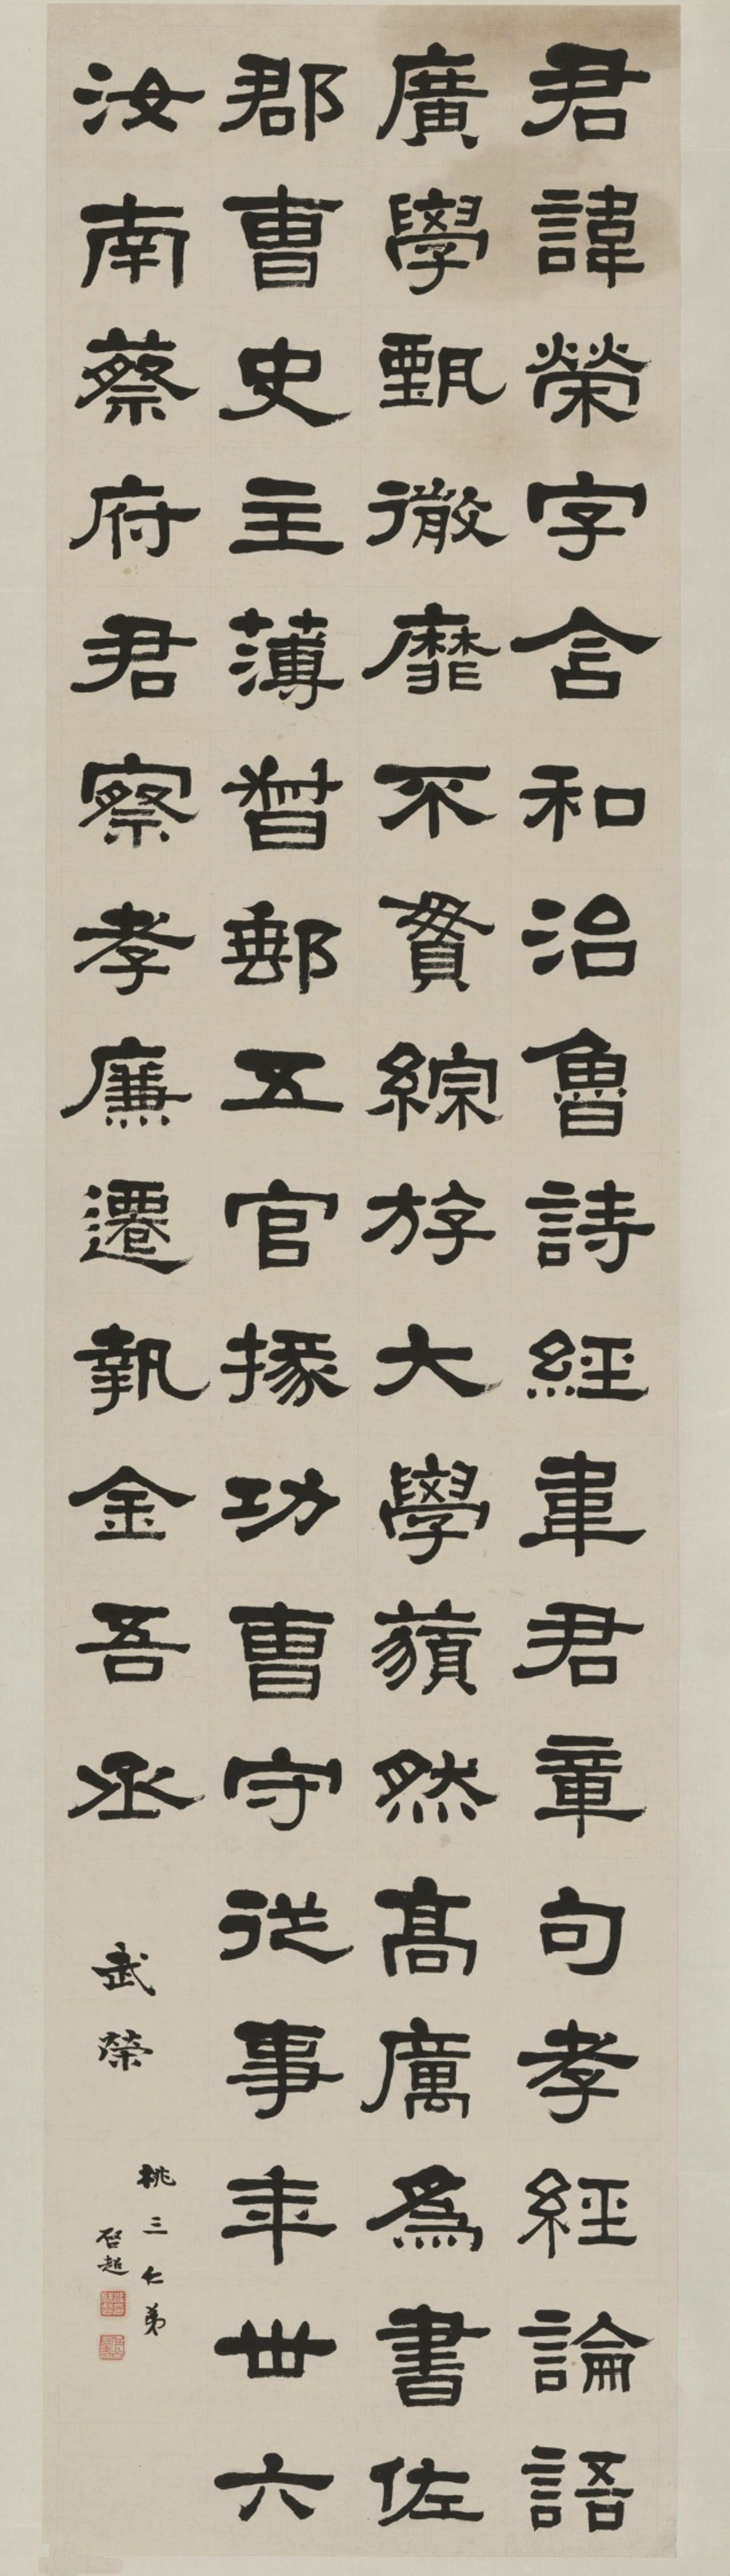 君諱榮字含和治魯詩經韋君章句孝經論語
廣學甄徹靡不貫綜游大學蘋然高厲為書佐
郡曹史主薄督郵五官掾功曹守從事年丗六
汝南蔡府君察孝廉遷執金吾丞
武榮
桃三仁弟
啓超